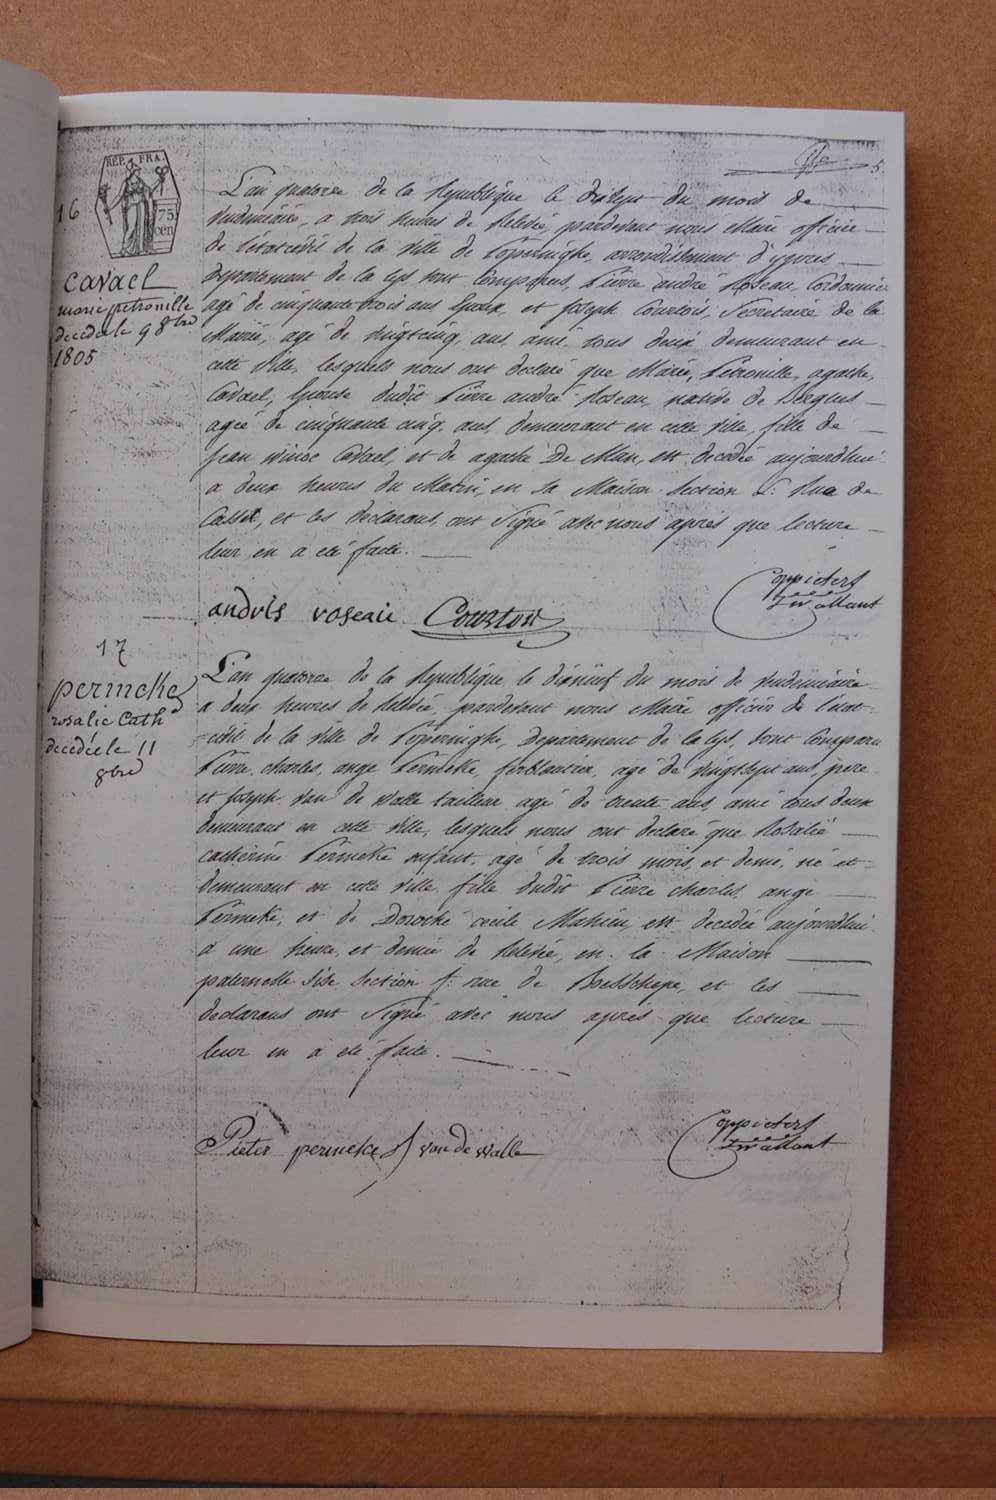 5
REP. FRA.
75
cen
16
Cavael
marie petronille
decedée le 9 8bre
1805
L'an quatorze de la Republique le dixsept du mois de
Vendemiaire, a trois heures de Relevée, pardevant nous Maire officier
de l'etat civil de la ville de Poperinghe, arrondissement d'ypres
Departement de la Lys sont Comparus, Pierre andré Roseau, Cordonnier
agé de cinquante trois ans Epoux, et Joseph Courtois, Secretaire de la
Mairie, agé de vingt cinq ans ami, tous deux demeurant en
cette Ville, lesquels nous ont declaré que Marie, Petronille, agathe,
Cavael, Epouse dudit Pierre andré Roseau, native de Bergues
agée de cinquante cinq ans, demeurant en cette ville, fille de
Jean Winoc Cavael, et de agathe De Man, est decedée aujourdhui
a deux heures du Matin, en sa Maison Section L: Rue de
Cassel, et les declarans, ont Signé avec nous après que lecture
leur en a eté faite.
andris roseau Courtois
Coppieters
17
permeke
rosalie Cath
decedée le 11
8bre
L'an quatorze de la Republique le dixneuf du mois de Vendemiaire
a deux heures de Relevée, pardevant nous Maire officier de l'etat
civil de la ville de Poperinghe, Departement de la Lys, sont Comparu
Pierre, charles, ange Permeke, ferblantier, agé de vingtsept ans, pere
et Joseph van de Walle tailleur agé de trente ans, ami tous deux
demeurant en cette ville, lesquels nous ont declaré que Rosalie
catherine Permeke enfant, agé de trois mois et demi, né et
demeurant en cette ville, fille dudit Pierre charles, ange
Permeke, et de Dorothé cecile Mahieu, est decedée aujourdhui
a une heure et demie de Relevée, en la Maison
paternelle Sise Section f: rue de Boesschepe, et les
declarans ont Signé avec nous après que lecture
leur en a eté faite.
Pieter permeke J van de walle
Coppieters